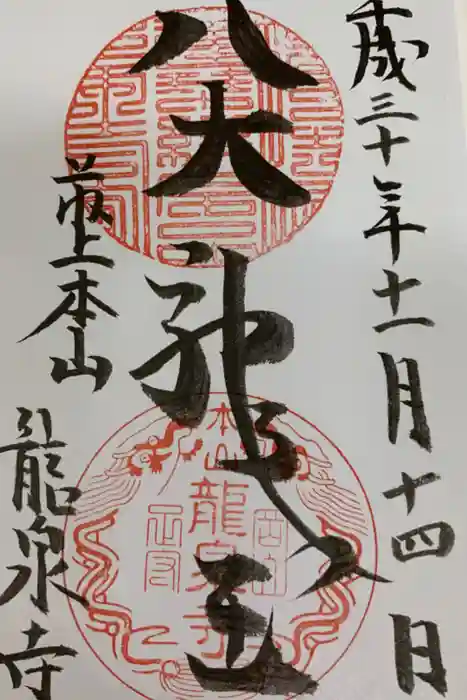 成三十年十一月十四日
八大龍王
最上本山
龍泉寺
本山龍泉寺